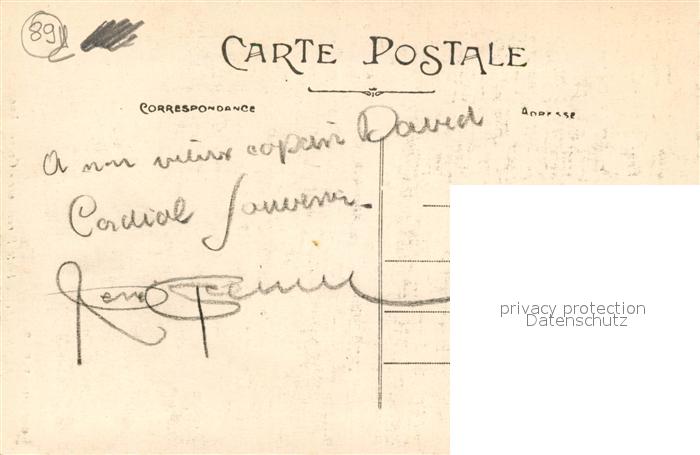 89
CARTE POSTALE
CORRESPONDANCE
ADRESSE
A mon vieux copain David
Cordial Souvenir
René
privacy protection
Datenschutz